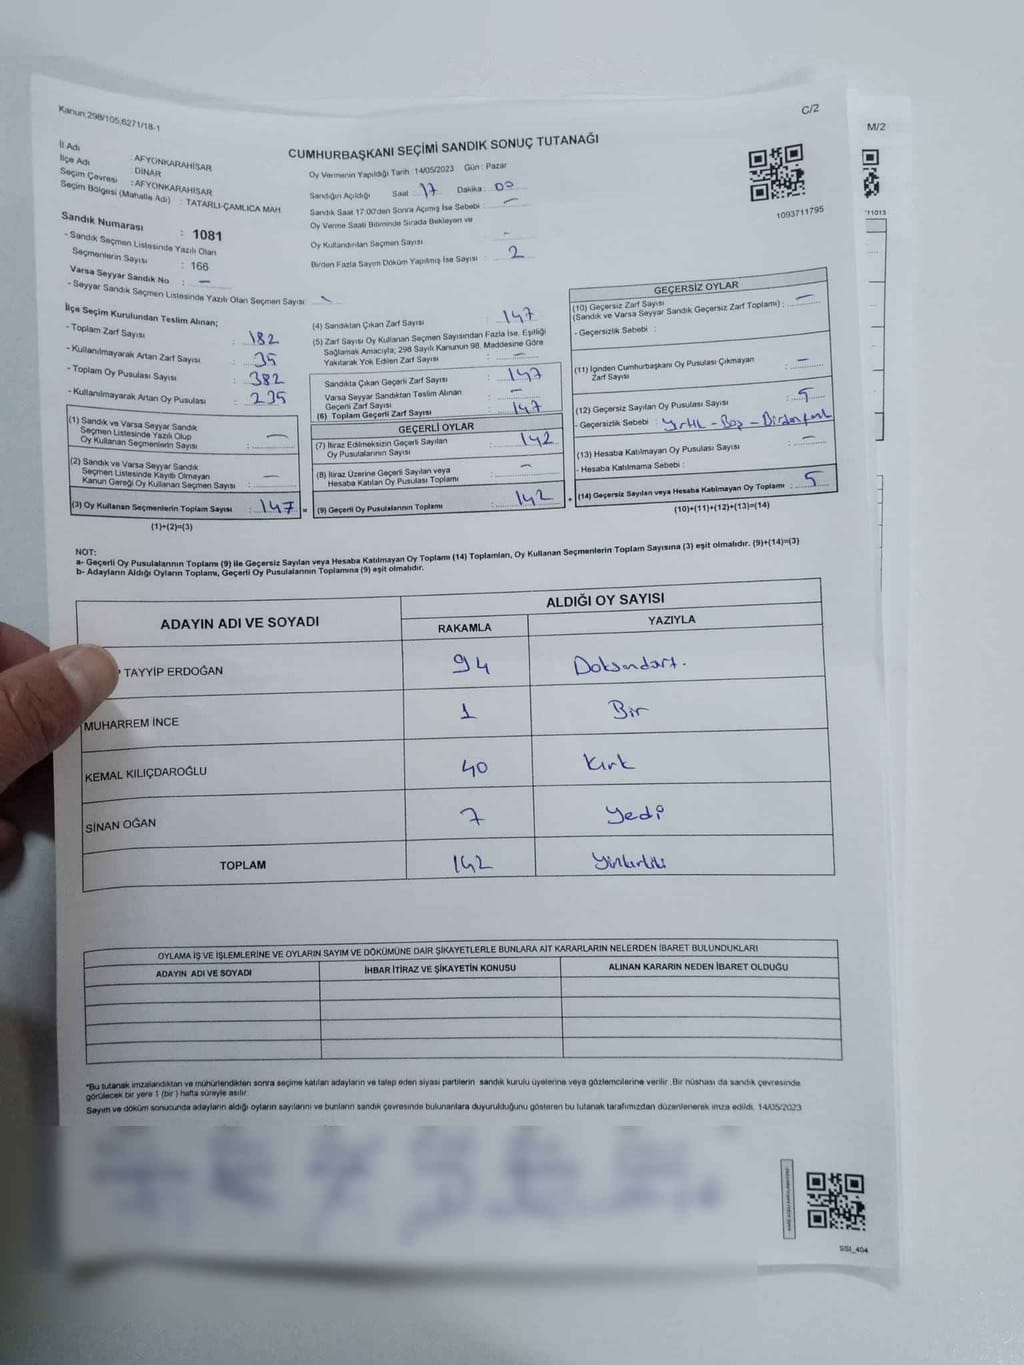 Kanun;298/105,6271/18-1
C/2
M/2
CUMHURBAŞKANI SEÇİMİ SANDIK SONUÇ TUTANAĞI
İl Adı : AFYONKARAHİSAR
İlçe Adı : DİNAR
Seçim Çevresi : AFYONKARAHİSAR
Seçim Bölgesi (Mahalle Adı) : TATARLI-ÇAMLICA MAH
Sandık Numarası : 1081
- Sandık Seçmen Listesinde Yazılı Olan
Seçmenlerin Sayısı : 166
Varsa Seyyar Sandık No : —
- Seyyar Sandık Seçmen Listesinde Yazılı Olan Seçmen Sayısı
Oy Vermenin Yapıldığı Tarih 14/05/2023 Gün : Pazar
Sandığın Açıldığı Saat 17 Dakika : 00
Sandık Saat 17:00'den Sonra Açımış İse Sebebi : —
Oy Verme Saati Bitiminde Sırada Bekleyen ve
Oy Kullandırılan Seçmen Sayısı -
Birden Fazla Sayım Döküm Yapılmış İse Sayısı : 2
1093711795
11013
İlçe Seçim Kurulundan Teslim Alınan;
- Toplam Zarf Sayısı : 182
- Kullanılmayarak Artan Zarf Sayısı : 35
- Toplam Oy Pusulası Sayısı : 382
- Kullanılmayarak Artan Oy Pusulası : 235
(1) Sandık ve Varsa Seyyar Sandık
Seçmen Listesinde Yazılı Olup
Oy Kullanan Seçmenlerin Sayısı : —
(2) Sandık ve Varsa Seyyar Sandık
Seçmen Listesinde Kayıtlı Olmayan
Kanun Gereği Oy Kullanan Seçmen Sayısı : —
(3) Oy Kullanan Seçmenlerin Toplam Sayısı : 147 =
(1)+(2)=(3)
(4) Sandıktan Çıkan Zarf Sayısı : 147
(5) Zarf Sayısı Oy Kullanan Seçmen Sayısından Fazla İse, Eşitliği
Sağlamak Amacıyla; 298 Sayılı Kanunun 98. Maddesine Göre
Yakılarak Yok Edilen Zarf Sayısı : —
Sandıkta Çıkan Geçerli Zarf Sayısı : 147
Varsa Seyyar Sandıktan Teslim Alınan
Geçerli Zarf Sayısı : —
(6) Toplam Geçerli Zarf Sayısı : 147
GEÇERLİ OYLAR
(7) İtiraz Edilmeksizin Geçerli Sayılan
Oy Pusulalarının Sayısı : 142
(8) İtiraz Üzerine Geçerli Sayılan veya
Hesaba Katılan Oy Pusulası Toplamı : —
(9) Geçerli Oy Pusulalarının Toplamı : 142 +
GEÇERSİZ OYLAR
(10) Geçersiz Zarf Sayısı
(Sandık ve Varsa Seyyar Sandık Geçersiz Zarf Toplamı) : —
- Geçersizlik Sebebi :
(11) İçinden Cumhurbaşkanı Oy Pusulası Çıkmayan
Zarf Sayısı : —
(12) Geçersiz Sayılan Oy Pusulası Sayısı : 5
- Geçersizlik Sebebi : Yırtık - Boş -
(13) Hesaba Katılmayan Oy Pusulası Sayısı : —
- Hesaba Katılmama Sebebi :
(14) Geçersiz Sayılan veya Hesaba Katılmayan Oy Toplamı : 5
(10)+(11)+(12)+(13)=(14)
NOT:
a- Geçerli Oy Pusulalarının Toplamı (9) ile Geçersiz Sayılan veya Hesaba Katılmayan Oy Toplamı (14) Toplamları, Oy Kullanan Seçmenlerin Toplam Sayısına (3) eşit olmalıdır. (9)+(14)=(3)
b- Adayların Aldığı Oyların Toplamı, Geçerli Oy Pusulalarının Toplamına (9) eşit olmalıdır.
ADAYIN ADI VE SOYADI ALDIĞI OY SAYISI
RAKAMLA YAZIYLA
TAYYİP ERDOĞAN 94 Doksandört.
MUHARREM İNCE 1 Bir
KEMAL KILIÇDAROĞLU 40 Kırk
SİNAN OĞAN 7 Yedi
TOPLAM 142
OYLAMA İŞ VE İŞLEMLERİNE VE OYLARIN SAYIM VE DÖKÜMÜNE DAİR ŞİKAYETLERLE BUNLARA AİT KARARLARIN NELERDEN İBARET BULUNDUKLARI
ADAYIN ADI VE SOYADI İHBAR İTİRAZ VE ŞİKAYETİN KONUSU ALINAN KARARIN NEDEN İBARET OLDUĞU
*Bu tutanak imzalandıktan ve mühürlendikten sonra seçime katılan adayların ve talep eden siyasi partilerin sandık kurulu üyelerine veya gözlemcilerine verilir .Bir nüshası da sandık çevresinde
görülecek bir yere 1 (bir ) hafta süreyle asılır.
Sayım ve döküm sonucunda adayların aldığı oyların sayılarını ve bunların sandık çevresinde bulunanlara duyurulduğunu gösteren bu tutanak tarafımızdan düzenlenerek imza edildi. 14/05/2023
SSI_404